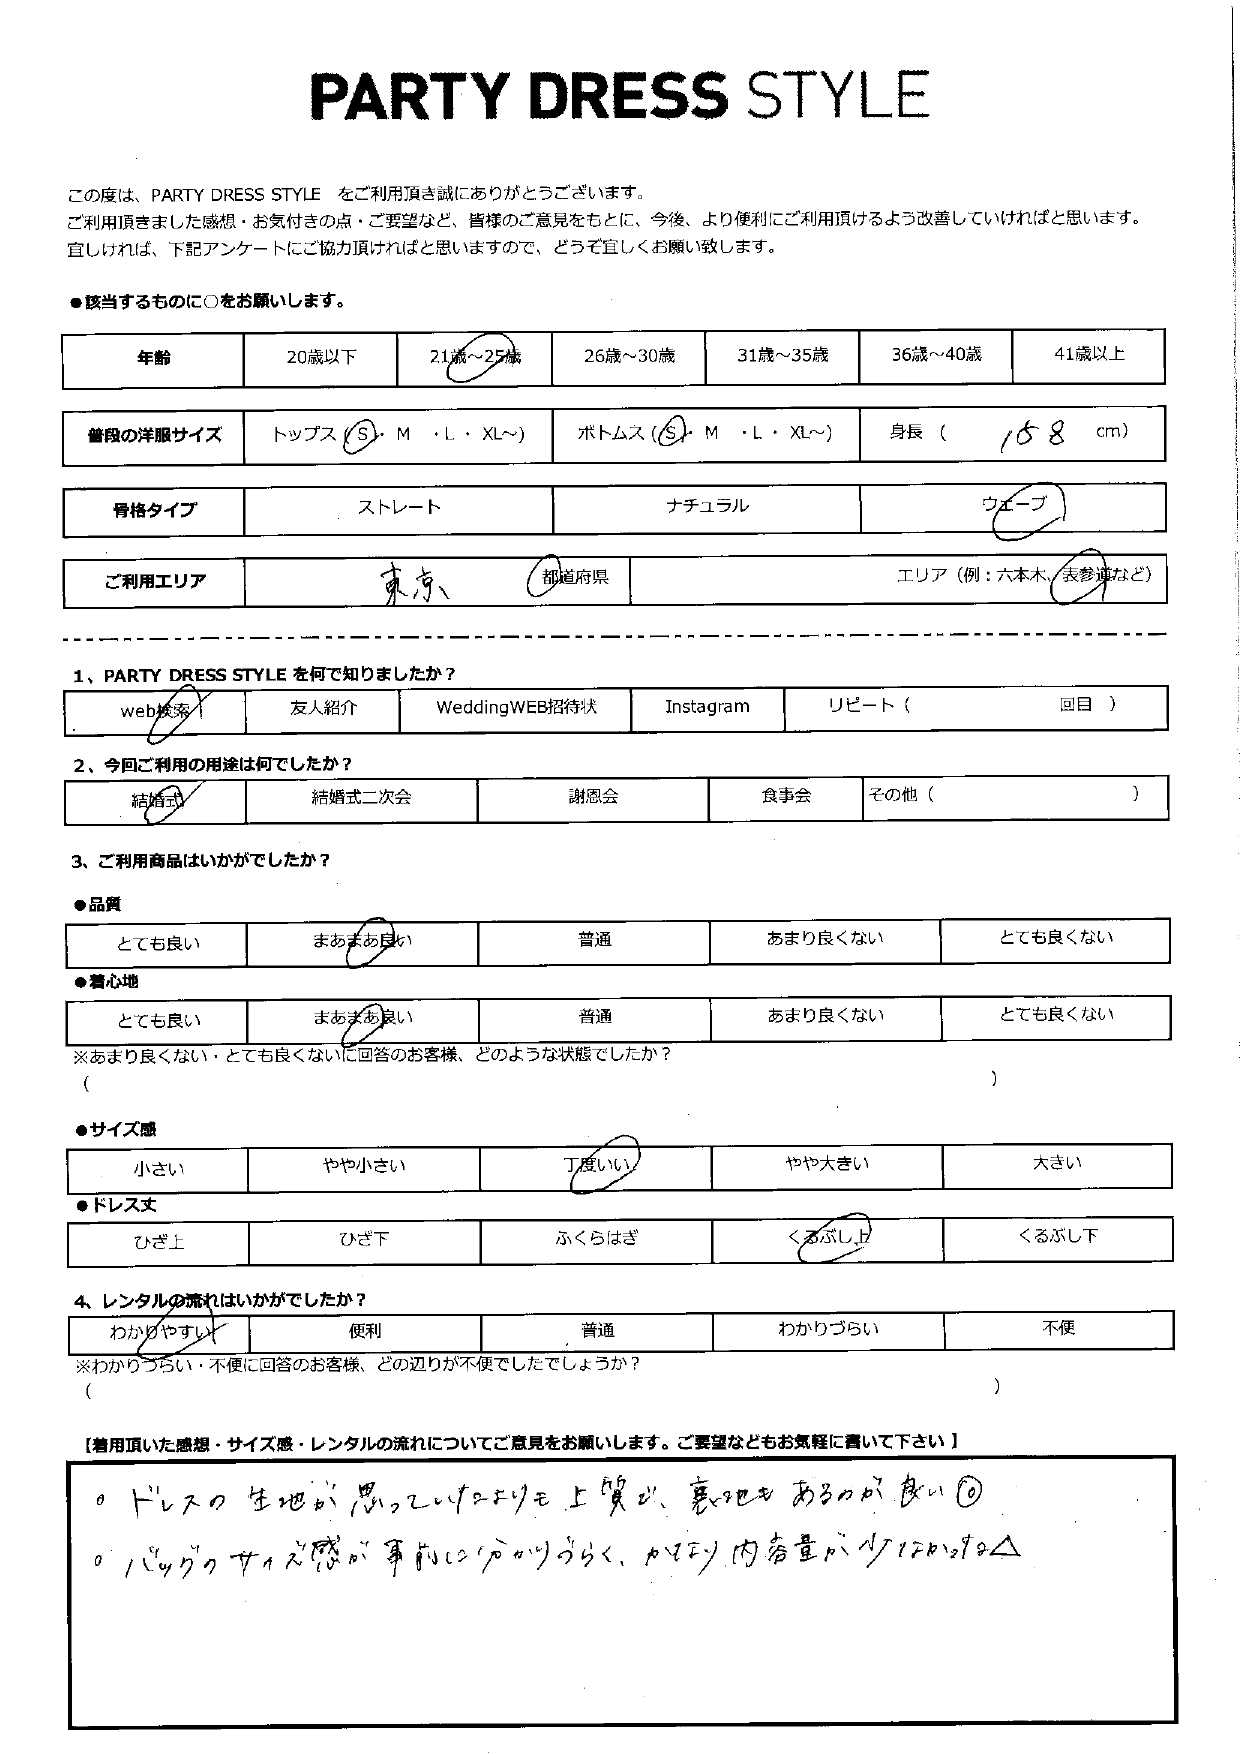 PARTY DRESS STYLE
この度は、PARTY DRESS STYLE をご利用頂き誠にありがとうございます。
ご利用頂きました感想・お気付きの点・ご要望など、皆様のご意見をもとに、今後、より便利にご利用頂けるよう改善していければと思います。
宜しければ、下記アンケートにご協力頂ければと思いますので、どうぞ宜しくお願い致します。
●該当するものに○をお願いします。
年齢 20歳以下 21歳～25歳 26歳～30歳 31歳～35歳 36歳～40歳 41歳以上
普段の洋服サイズ トップス (S・ M ・L ・ XL～) ボトムス (S・ M ・L ・ XL～) 身長 ( 158 cm)
骨格タイプ ストレート ナチュラル ウェーブ
ご利用エリア 東京 都道府県 エリア（例：六本木、表参道など）
1、PARTY DRESS STYLE を何で知りましたか？
web検索 友人紹介 WeddingWEB招待状 Instagram リピート ( 回目 )
2、今回ご利用の用途は何でしたか？
結婚式 結婚式二次会 謝恩会 食事会 その他 ( )
3、ご利用商品はいかがでしたか？
●品質
とても良い まあまあ良い 普通 あまり良くない とても良くない
●着心地
とても良い まあまあ良い 普通 あまり良くない とても良くない
※あまり良くない・とても良くないに回答のお客様、どのような状態でしたか？
( )
●サイズ感
小さい やや小さい 丁度いい やや大きい 大きい
●ドレス丈
ひざ上 ひざ下 ふくらはぎ くるぶし上 くるぶし下
4、レンタルの流れはいかがでしたか？
わかりやすい 便利 普通 わかりづらい 不便
※わかりづらい・不便に回答のお客様、どの辺りが不便でしたでしょうか？
( )
【着用頂いた感想・サイズ感・レンタルの流れについてご意見をお願いします。ご要望などもお気軽に書いて下さい】
○ ドレスの生地が思っていたよりも上質で、裏地もあるのが良い◎
○ バッグのサイズ感が事前に分かりづらく、かなり内容量が少なかった△